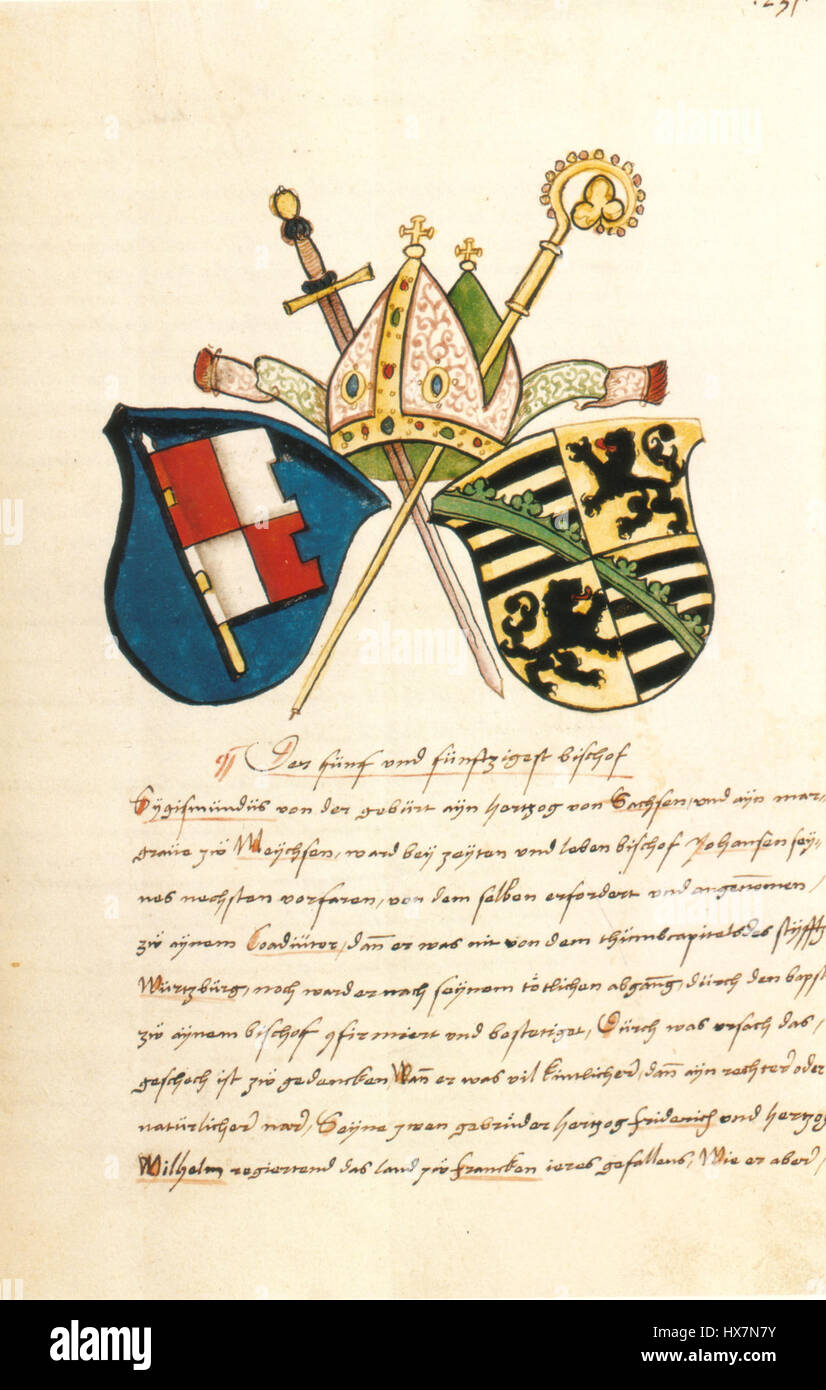 .231
Der fünf und fünftzigest bischof
Sÿgismündüs von der gebürt aÿn hertzog von Sachsen, und aÿn mar,
graüe zü Meÿchsen, ward beÿ zeÿten und leben bischof Johansen seÿ=
nes nechsten vorfaren, von dem selben erfordert und angenomen,
zü aÿnem Coadiütor, dañ er was nit von dem thümbcapitel des stÿfftz
Würtzbürg, noch ward er nach seÿnem tötlichen abgang, dürch den bapst
zü aÿnem bischof 9firmiert und bestetiget, Dürch was ursach das,
geschech ist zü gedencken, Wañ er was vil kintlicher, dañ aÿn rechter oder
natürlicher nar, Seÿne zwen gebrüder hertzog friderich und hertzog
Wilhelm regiertend das land zü francken ieres gefallens, Wie er aber,
alamy
alamy
Image ID: HX7N7Y
www.alamy.com